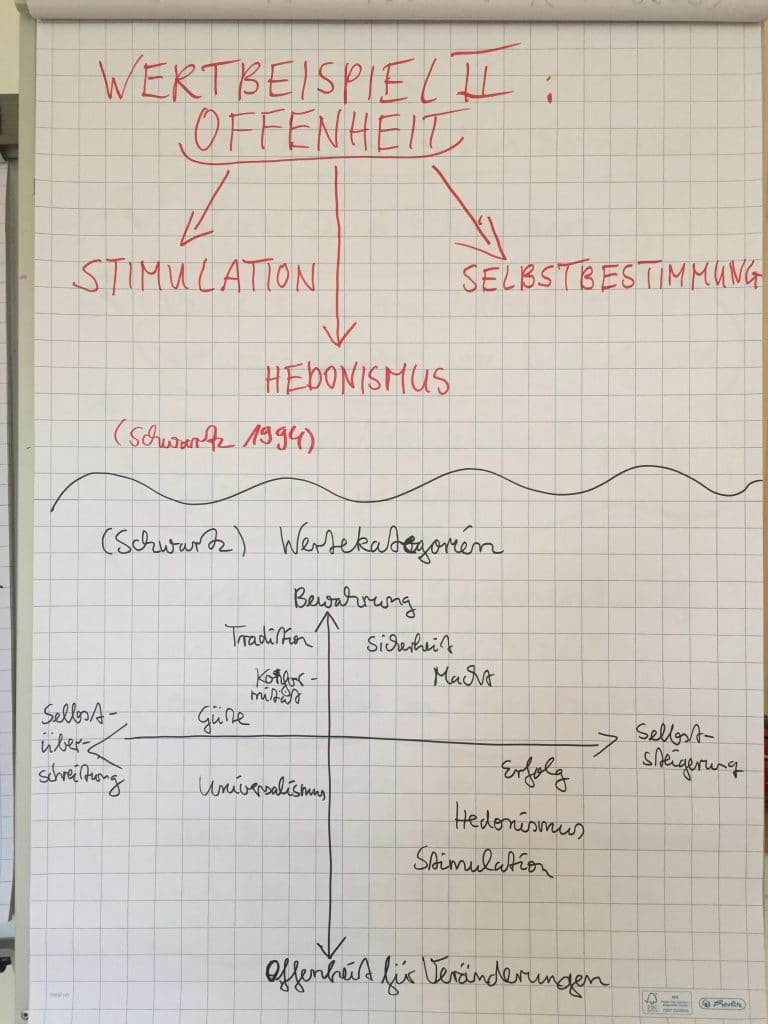 WERTBEISPIEL II :
OFFENHEIT
STIMULATION
SELBSTBESTIMMUNG
HEDONISMUS
(Schwartz 1994)
(Schwartz) Wertekategorien
Bewahrung
Tradition
Sicherheit
Konfor-
mität
Macht
Güte
Selbst-
über-
schreitung
Selbst-
steigerung
Universalismus
Erfolg
Hedonismus
Stimulation
Offenheit für Veränderungen
FSC
MIX
Herlitz